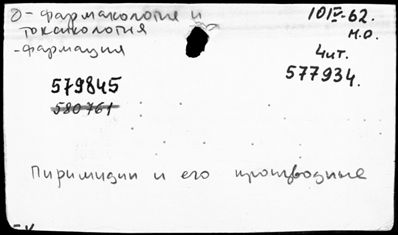 д - фармакология и
токсикология
- фармация
10 IV-62.
м.о.
4 чит.
577934.
579845
580761
Пиримидин и его производные